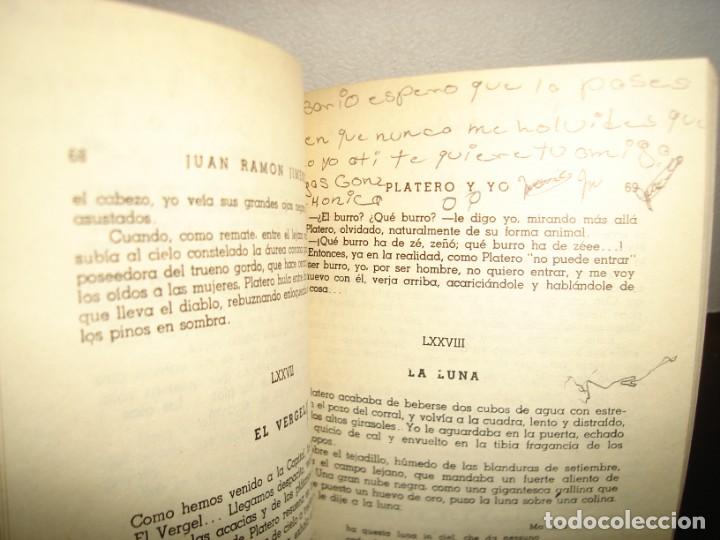 68
JUAN RAMON
el cabezo, yo veía sus grandes ojos
asustados.
Cuando, como remate, entre el
subía al cielo constelado la áurea
poseedora del trueno gordo, que hace
los oídos a las mujeres, Platero huía entre
que lleva el diablo, rebuznando
los pinos en sombra.
LXXVII
EL VERGEL
Como hemos venido a la Capital,
El Vergel... Llegamos despacito,
las acacias y de los
de Platero resuena
de cielo
espero que la pases
en que nunca me holvides que
yo ati te quiere tu amiga
Gonz
Monica
PLATERO Y YO
69
—¿El burro? ¿Qué burro? —le digo yo, mirando más allá
Platero, olvidado, naturalmente de su forma animal.
—¡Qué burro ha de zé, zeñó; qué burro ha de zée...!
Entonces, ya en la realidad, como Platero "no puede entrar"
ser burro, yo, por ser hombre, no quiero entrar, y me voy
nuevo con él, verja arriba, acariciándole y hablándole de
cosa...
LXXVIII
LA LUNA
Platero acababa de beberse dos cubos de agua con estre-
en el pozo del corral, y volvía a la cuadra, lento y distraído,
los altos girasoles. Yo le aguardaba en la puerta, echado
quicio de cal y envuelto en la tibia fragancia de los
opos.
sobre el tejadillo, húmedo de las blanduras de setiembre,
el campo lejano, que mandaba un fuerte aliento de
Una gran nube negra, como una gigantesca gallina que
puesto un huevo de oro, puso la luna sobre una colina.
le dije a la luna:
ha questa luna in ciel, che da nessuno
todocoleccion